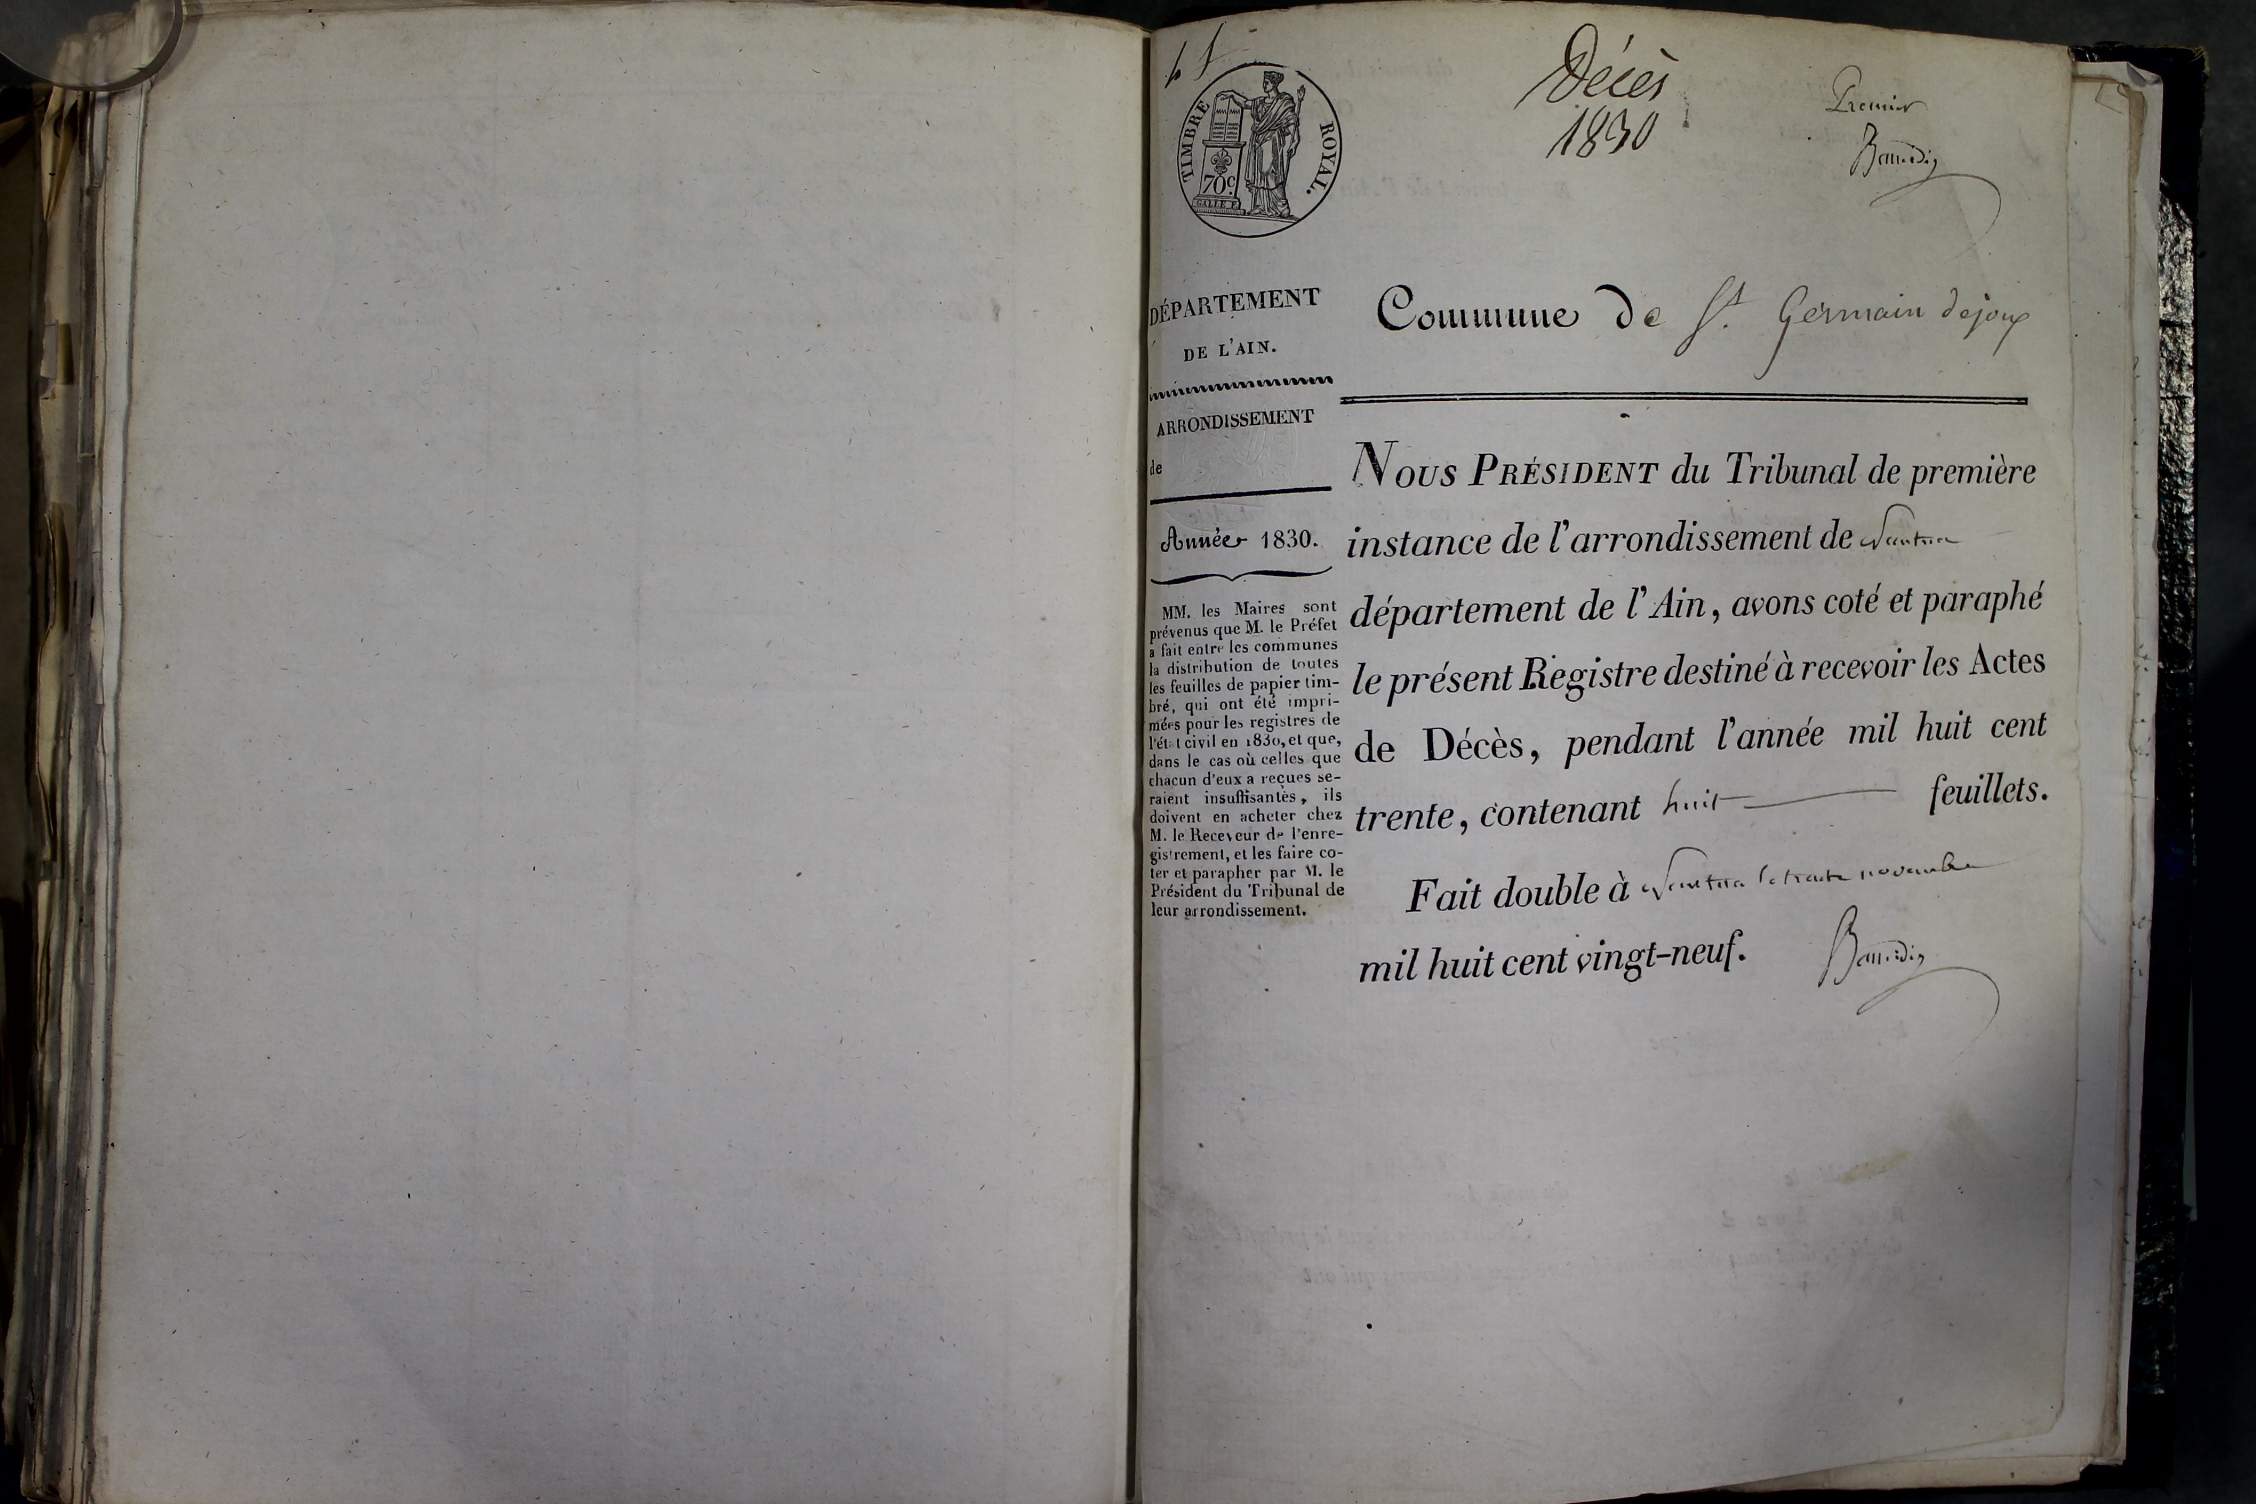 Décès
1830
Premier
TIMBRE ROYAL.
70c.
GALLE F.
DÉPARTEMENT
DE L'AIN.
ARRONDISSEMENT
de
Année 1830.
MM. les Maires sont
prévenus que M. le Préfet
a fait entre les communes
la distribution de toutes
les feuilles de papier tim-
bré, qui ont été impri-
mées pour les registres de
l'état civil en 1830, et que,
dans le cas où celles que
chacun d'eux a reçues se-
raient insuffisantes, ils
doivent en acheter chez
M. le Receveur de l'enre-
gistrement, et les faire co-
ter et parapher par M. le
Président du Tribunal de
leur arrondissement.
Commune de St. Germain dejoux
NOUS PRÉSIDENT du Tribunal de première
instance de l'arrondissement de Nantua
département de l'Ain, avons coté et paraphé
le présent Registre destiné à recevoir les Actes
de Décès, pendant l'année mil huit cent
trente, contenant huit feuillets.
Fait double à Nantua le trente novembre
mil huit cent vingt-neuf.